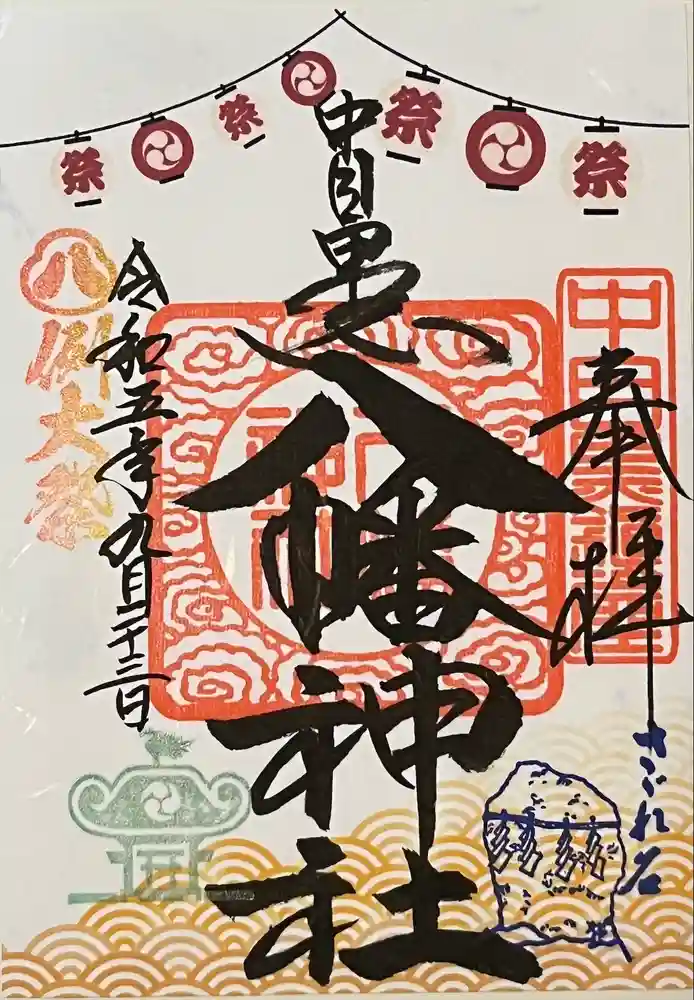 祭
祭
祭
祭
奉拝
さざれ石
中目黒
八幡神社
八
例大祭
令和五年九月二十三日